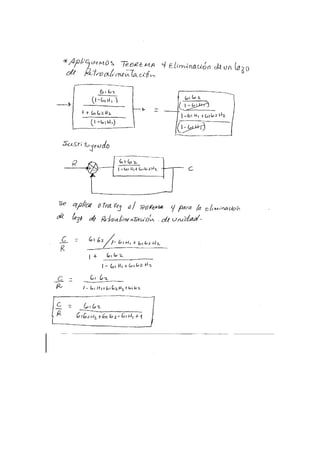 * Apliquemos TEOREMA y Eliminación de un lazo
de Retroalimentación
G1G2
(1-G1H1)
1 + G1G2H2
(1-G1H1)
=
G1G2
(1-G1H1)
1-G1H1 + G1G2H2
(1-G1H1)
Sustituyendo
R
G1G2
1-G1H1+G1G2H2
C
Se aplica otra vez el TEOREMA y para la eliminación
de lazo de Retroalimentación de unidad.
C/R = G1G2 / 1-G1H1 + G1G2H2
1 + G1G2
1-G1H1+G1G2H2
C/R = G1G2
1-G1H1+G1G2H2+G1G2
C/R = G1G2
G1G2H2+G1G2-G1H1+1